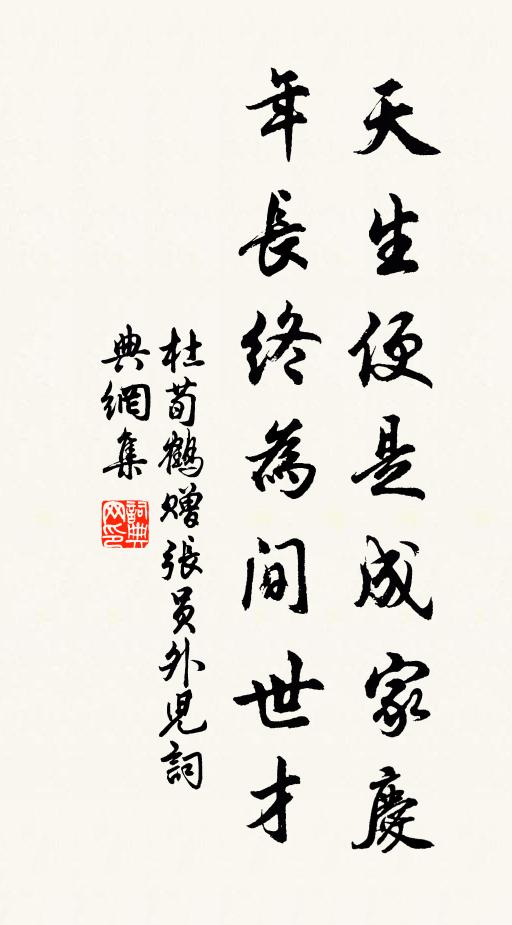 天生便是成家慶
年長終為间世才
杜荀鶴贈張員外児詞
典網集
詞典
网印